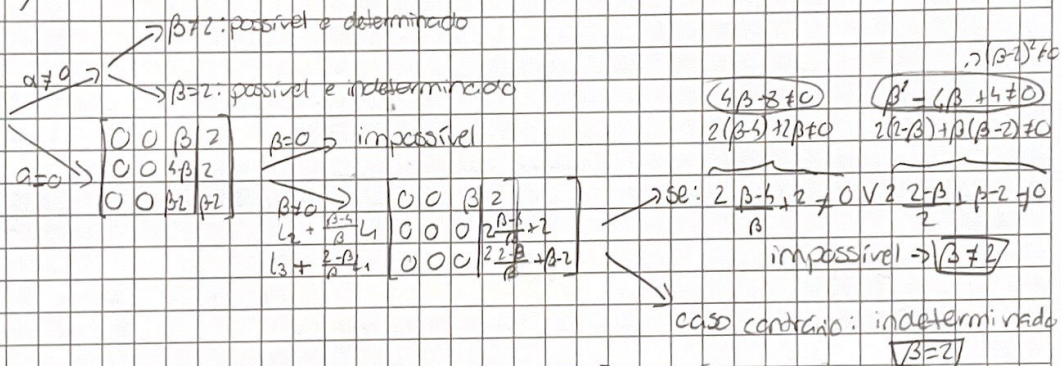 β≠2: possível e determinado
a≠0
β=2: possível e indeterminado
a=0
0 0 β | 2
0 0 4-β | 2
0 0 β-2 | β-2
β=0 impossível
β≠0
L2 + (β-4)/β L1
L3 + (2-β)/β L1
0 0 β | 2
0 0 0 | 2 (β-4)/β + 2
0 0 0 | 2 (2-β)/β + β-2
→(β-2)²≠0
4β-8≠0 β²-4β+4≠0
2(β-4)+2β≠0 2(2-β)+β(β-2)≠0
se: 2 (β-4)/β + 2 ≠ 0 V 2 (2-β)/2 + β-2 ≠ 0
impossível → β≠2
caso contrário: indeterminado
β=2